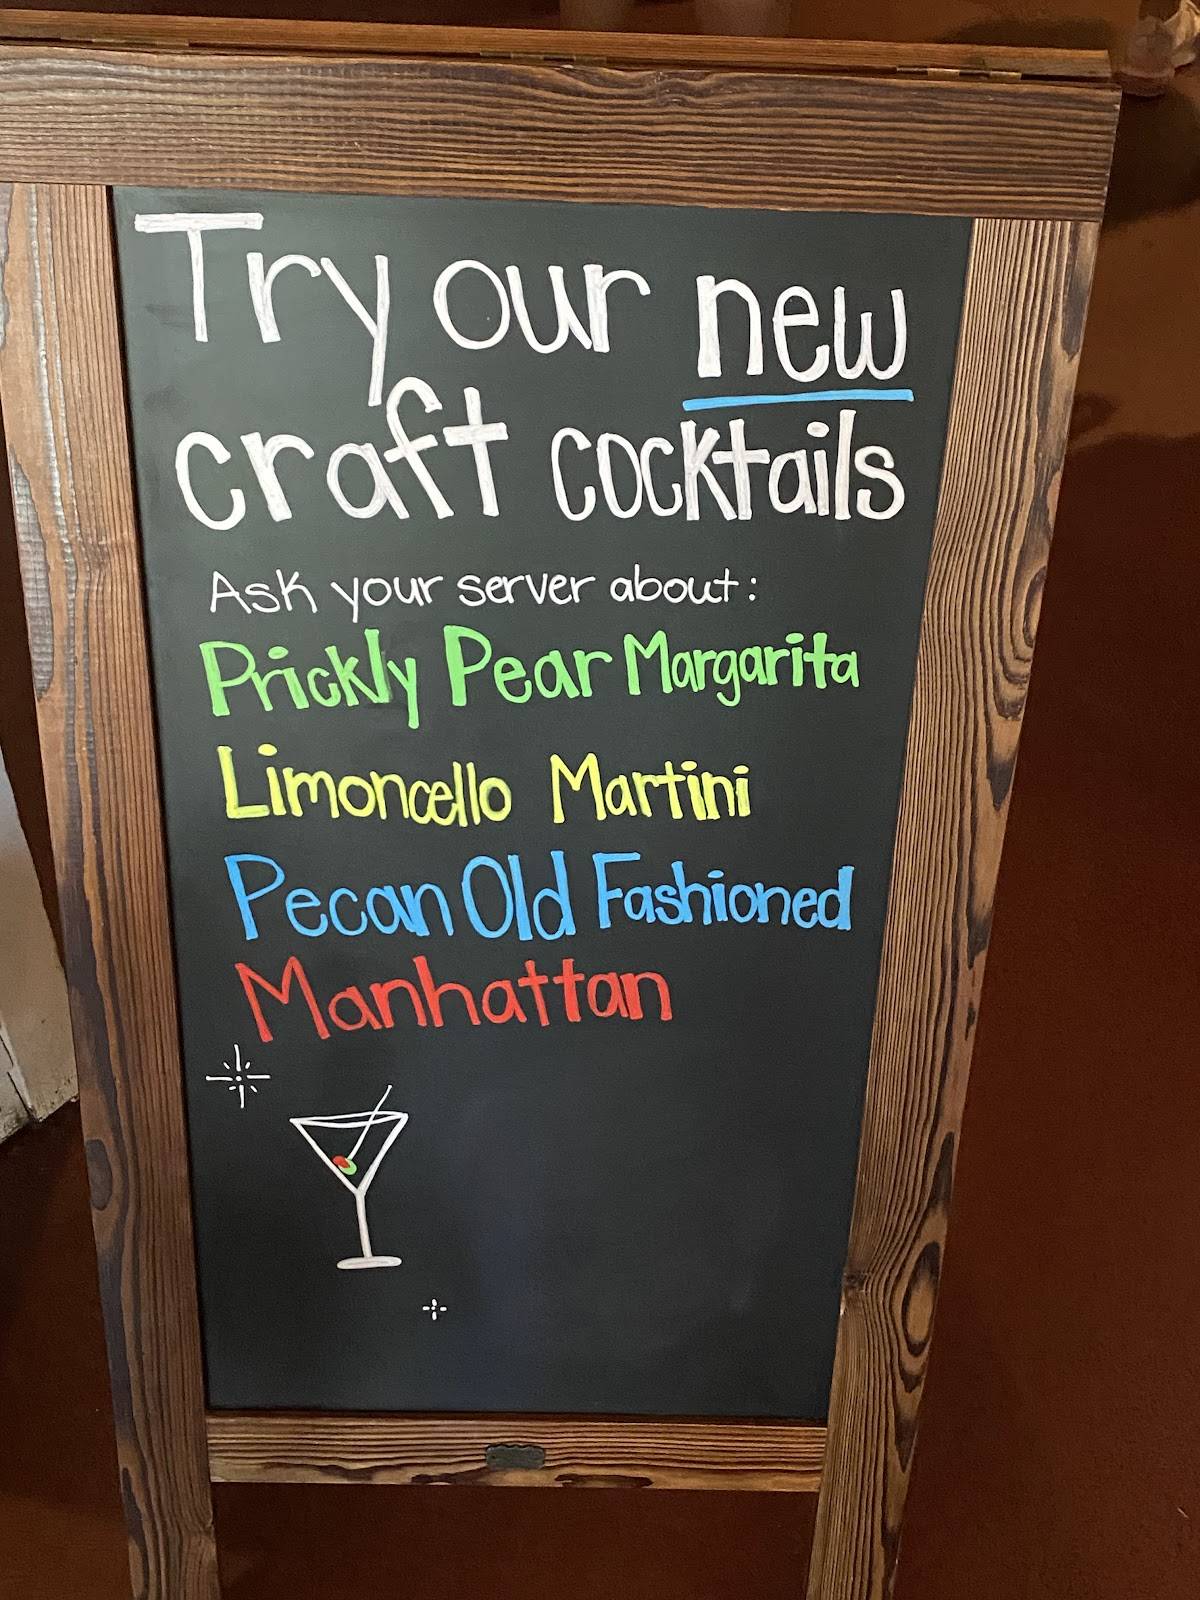 Try our new
craft cocktails
Ask your server about:
Prickly Pear Margarita
Limoncello Martini
Pecan Old Fashioned
Manhattan